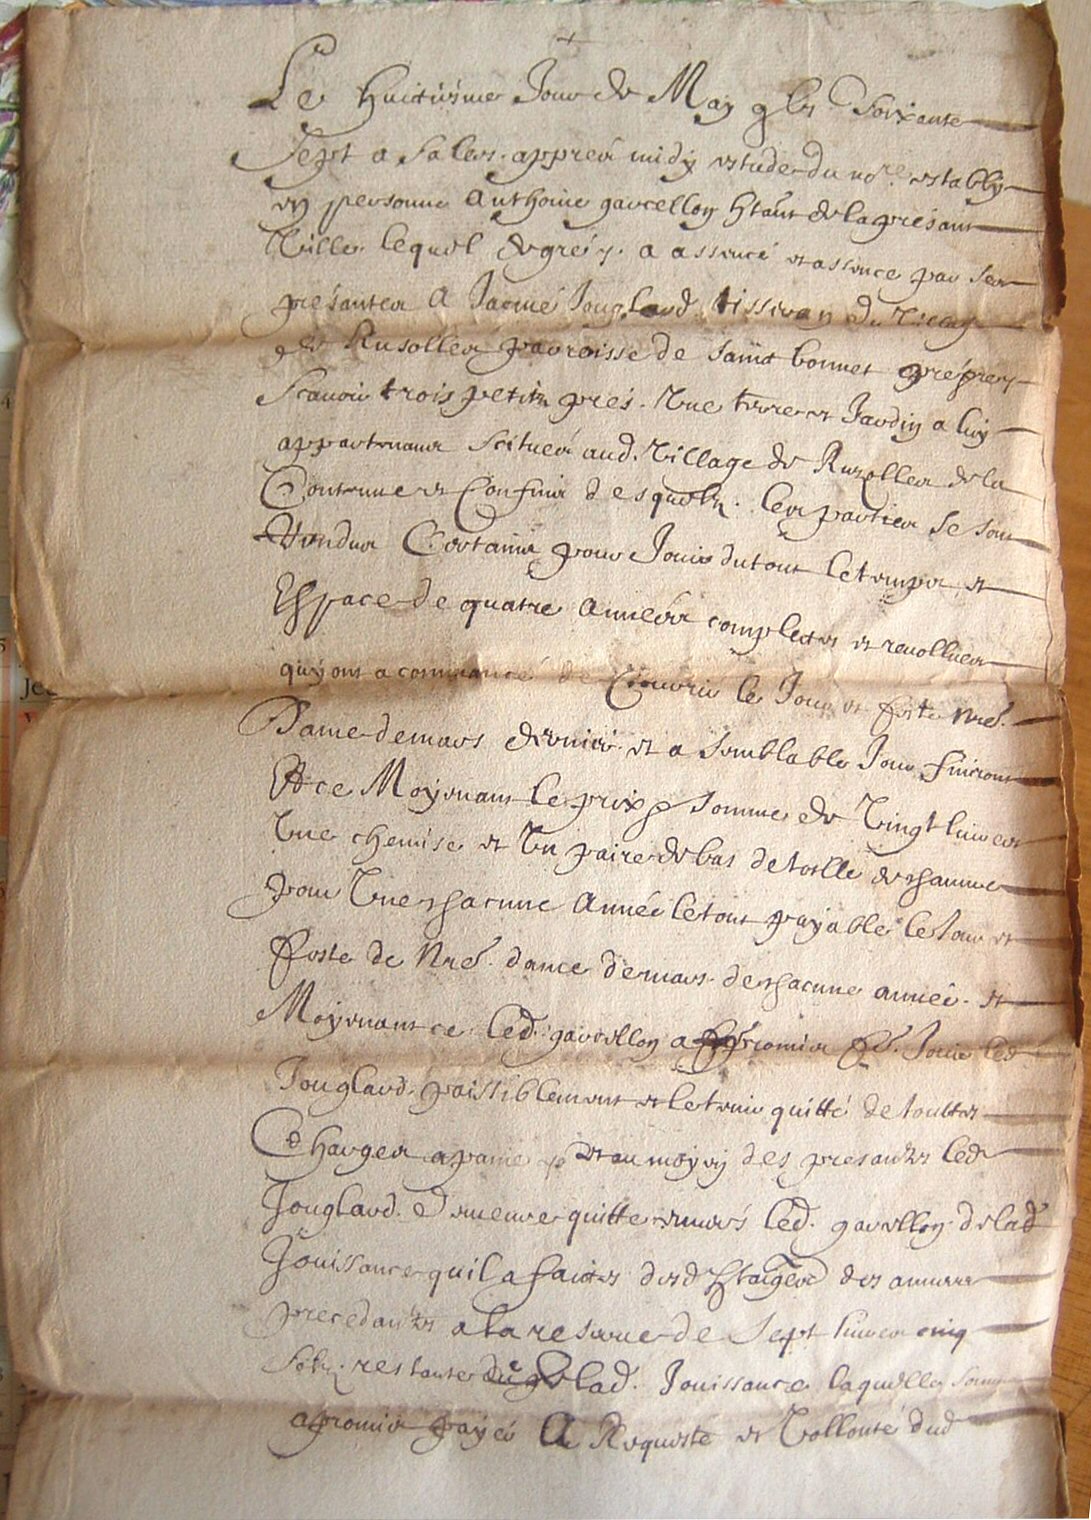 Le huictiesme Jour de May g bis Soixante
Sept a Salers. appres midy estude du nore. estably
en personne Anthoine garcellon htant de la presant
Ville. lequel de gré. a assencé et assence par ses
presantes A Jacme Jouglard tissiran du Village
de Rusolles parroisse de Saint bonnet
Scavoir trois petitz pres. Une terre et Jardin a luy
appartenans Scitues aud. Village de Ruzolles de la
Contenue et Confins desquelz. les parties se sont
Rendues Certains pour Jouir du tout le temps et
Espace de quatre Années complectes et revollues
quy ont a commancé de Couvrir le Jour et feste Nre.
Dame de mars dernier. et a semblable Jour finiront
Et ce Moyenant le prix Somme de Vingt livres
Une chemise et Un paire de bas de toille de chanvre
pour Une chacune Année le tout payable le Jour et
feste de Nre. dame de mars. de chacune année. et
Moyenant ce led. garcellon a promis fe. Jouir led
Jouglard. paisiblement et le tenir quitte de touttes
Charges a paine et au moyen des presantes led
Jouglard. demeure quitte envers led. garcellon. de lad
Jouissance quil a faictes desd heritages des annees
precedantes a la reserve de Sept livres cinq
Solz. restantes de lad. Jouissance laquelle somme
a promis payer A Requeste et Vollonté dud